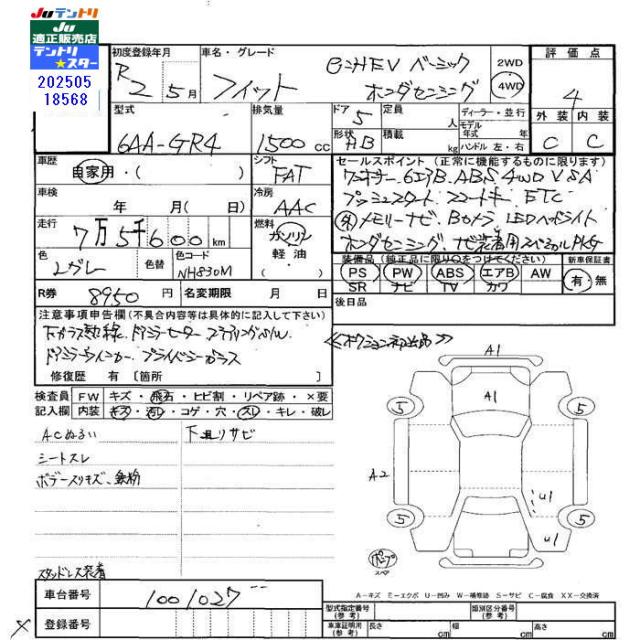 Juテントリ
Ju
適正販売店
テントリ
★スター
202505
18568
初度登録年月 車名・グレード 2WD 評価点
R2 5月 フィット e:HEV ベーシック ホンダセンシング 4WD 4
型式 排気量 ドア 定員 ディーラー・並行 外装 内装
6AA-GR4 1500cc 5 人 モデル年式 年 C C
形状 HB 積載 kg ハンドル 左・右
車歴 自家用・( ) シフト FAT
セールスポイント (正常に機能するものに限ります)
ワンオーナー 6エアB ABS 4WD VSA
プッシュスタート スマートキー ETC
外 メモリーナビ Bカメラ LEDヘッドライト
ホンダセンシング ナビ装着用スペシャルPKG
車検 年 月( 日) 冷房 AAC
走行 7万5千600km 燃料 ガソリン 軽油 ( )
色 Lグレー 色替 色コード NH830M
装備品(純正品に限り○をつけてください) 新車保証書
PS PW ABS エアB AW 有・無
SR ナビ TV カワ
R券 8950円 名変期限 月 日 後日品
注意事項申告欄(不具合内容等は具体的に記入して下さい)
ドアミラーウィンカー プライバシーガラス
修復歴 有 [箇所 ]
検査員記入欄 FW キズ・飛石・ヒビ割・リペア跡・×要
内装 キズ・汚レ・コゲ・穴・スレ・キレ・破レ
ACぬるい 下廻りサビ
シートスレ
ボデースリキズ、鉄粉
A1
A1
5 5
A2
U1
5 5
U1
テンプ
スペア
スタッドレス装着
A-キズ E-エクボ U-凹み W-補修跡 S-サビ C-腐食 XX-交換済
車台番号 1001027
型式指定番号(参考) 類別区分番号(参考)
登録番号
車庫証明用(参考) 長さ cm 幅 cm 高さ cm